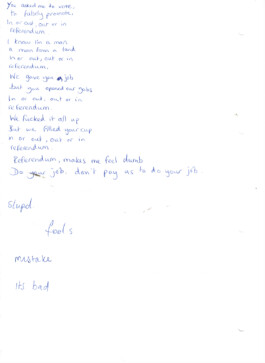 You asked me to vote
To falsely promote
In or out, out or in
referendum
I know I'm a man
a man from a land
in or out, out or in
referendum.
We gave you a job
but you opened our gobs
In or out, out or in
referendum
We fucked it all up
But we filled your cup
n or out, out or in
referendum
Referendum, makes me feel dumb
Do your job, don't pay us to do your job
Stupid
fools
mistake
its bad